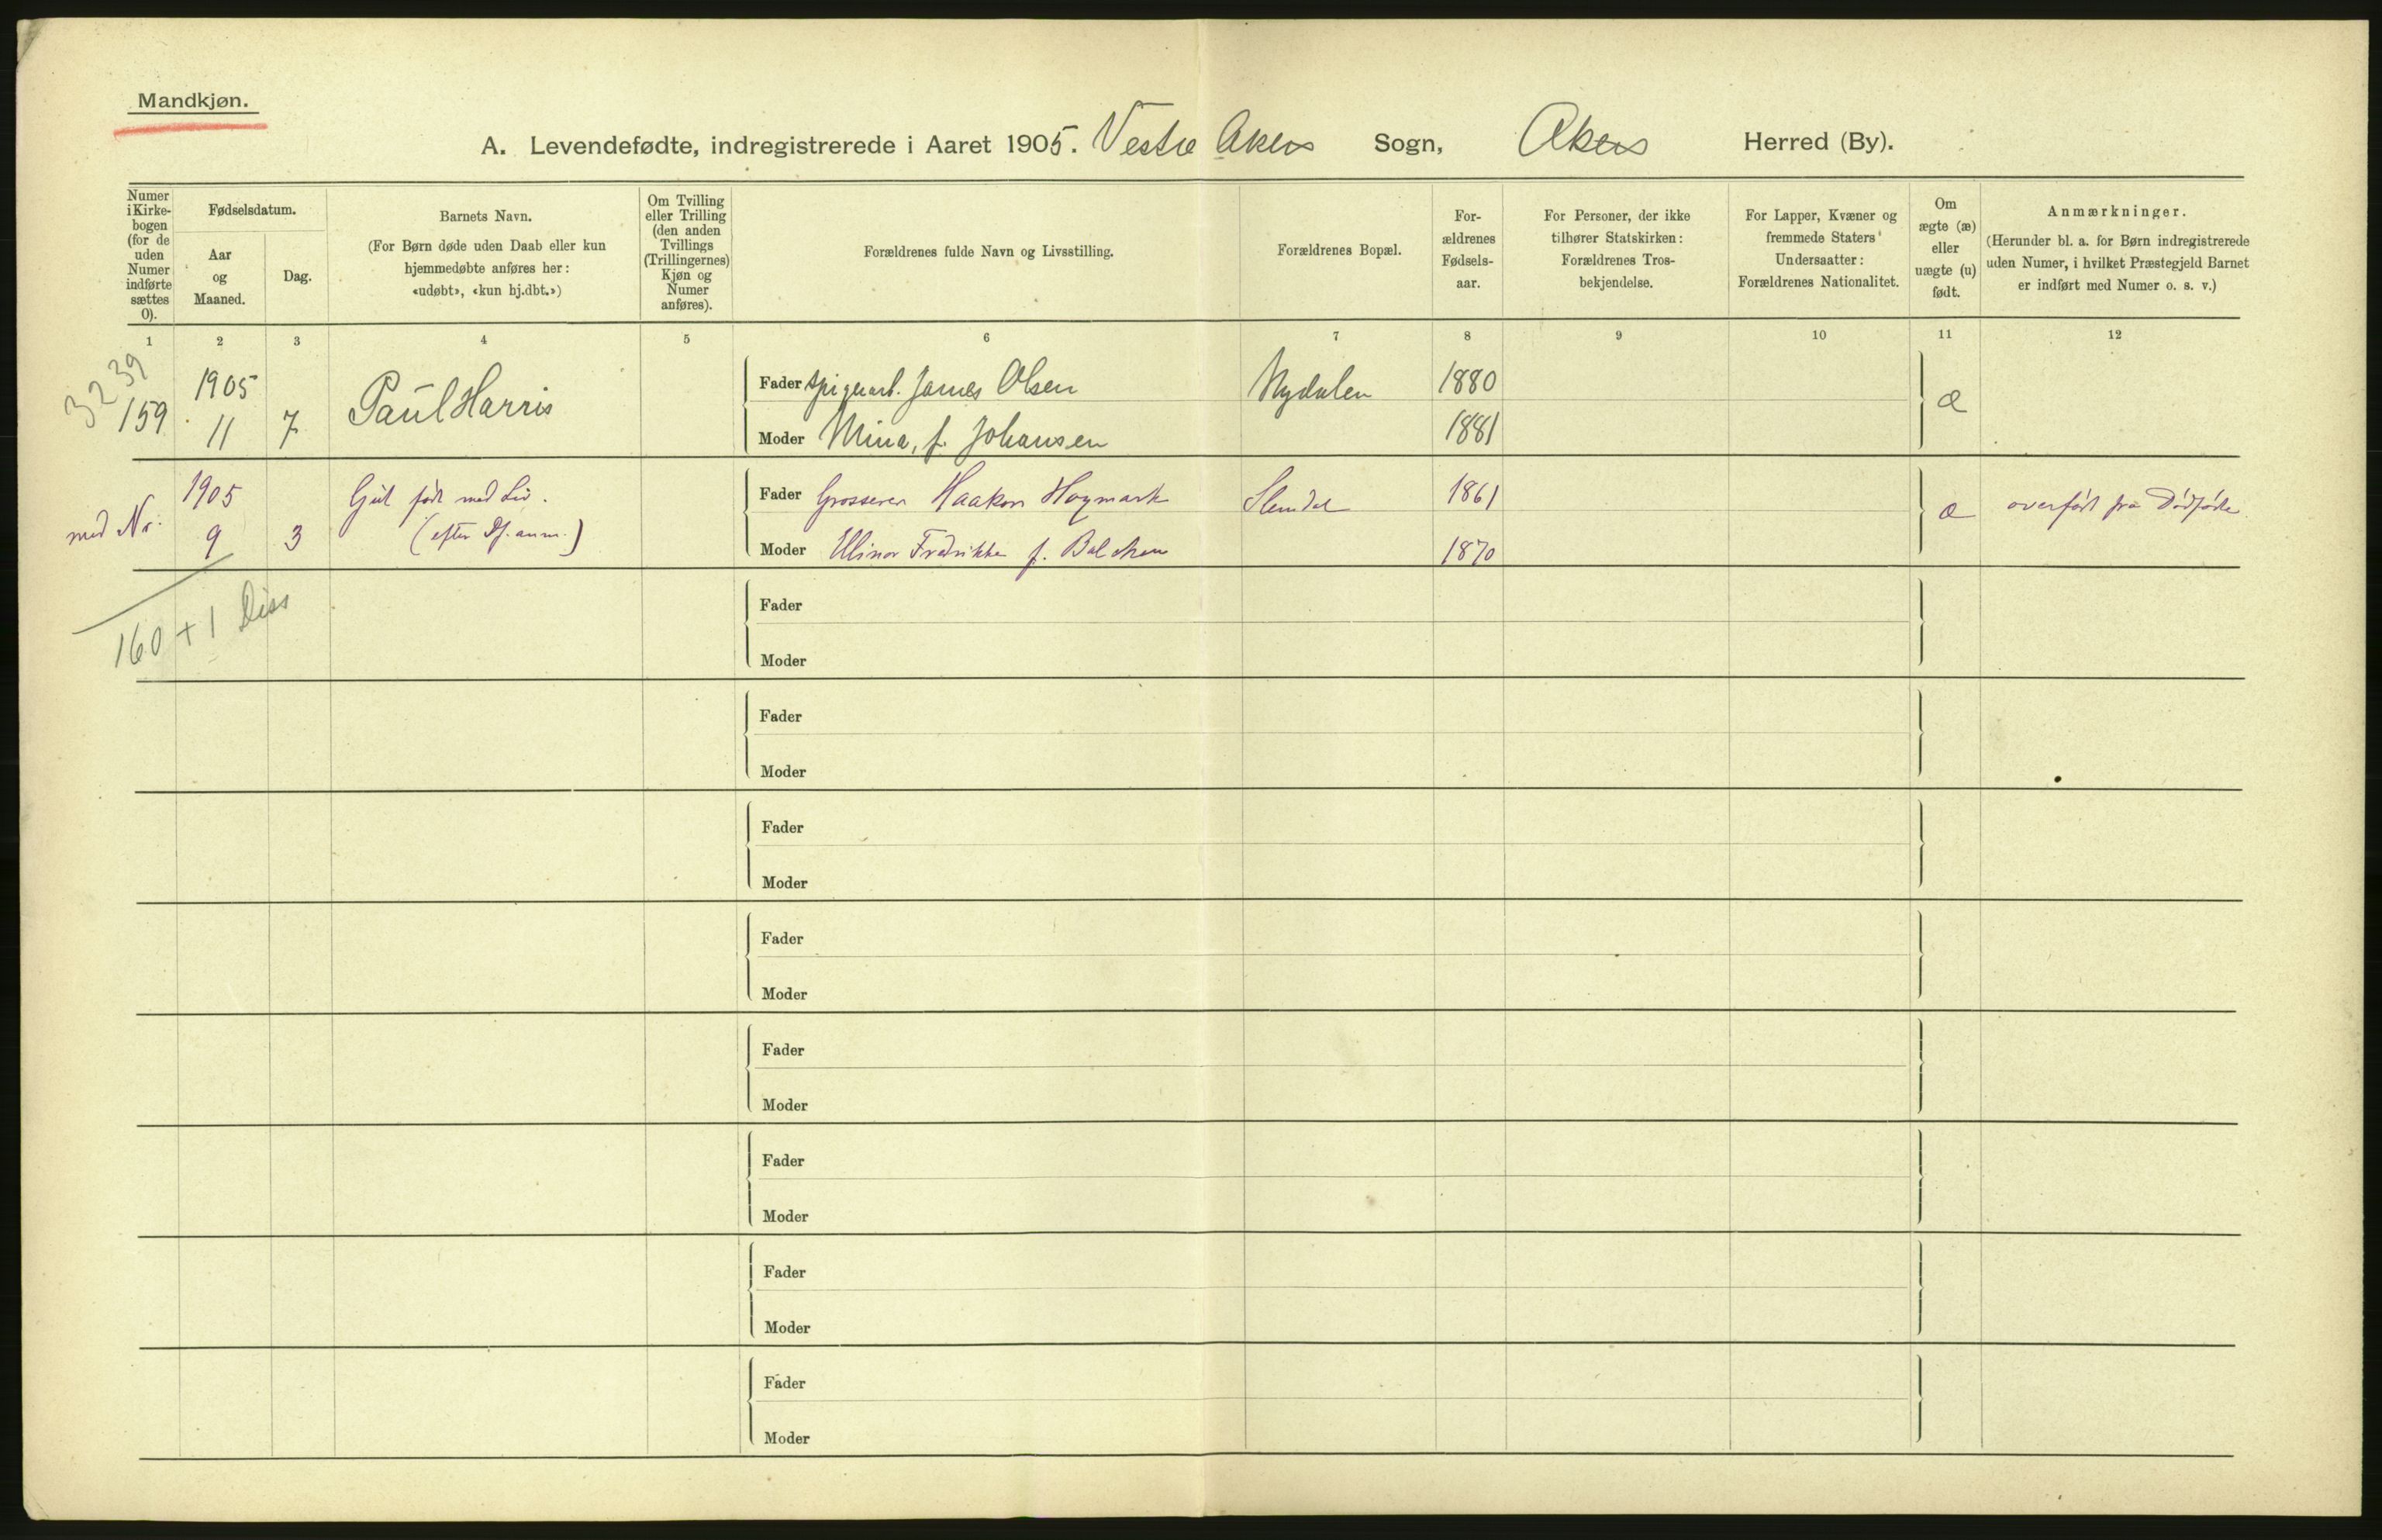 Mandkjøn.
A. Levendefødte, indregistrerede i Aaret 1905. Vestre Akers Sogn, Akers Herred (By).
Numer
i Kirke-
bogen
(for de
uden
Numer
indførte
sættes
0).
Fødselsdatum.
Aar
og
Maaned.
Dag.
Barnets Navn.
(For Børn døde uden Daab eller kun
hjemmedøbte anføres her:
«udøbt», «kun hj.dbt.»)
Om Tvilling
eller Trilling
(den anden
Tvillings
(Trillingernes)
Kjøn og
Numer
anføres).
Forældrenes fulde Navn og Livsstilling.
Forældrenes Bopæl.
For-
ældrenes
Fødsels-
aar.
For Personer, der ikke
tilhører Statskirken:
Forældrenes Tros-
bekjendelse.
For Lapper, Kvæner og
fremmede Staters
Undersaatter:
Forældrenes Nationalitet.
Om
ægte (æ)
eller
uægte (u)
født.
Anmærkninger.
(Herunder bl. a. for Børn indregistrerede
uden Numer, i hvilket Præstegjeld Barnet
er indført med Numer o. s. v.)
1 2 3 4 5 6 7 8 9 10 11 12
3239
159 1905 11 7 Paul Harris
Fader James Olsen Nydalen 1880 æ
Moder Mina, f. Johansen 1881
med Nr. 1905 9 3 Gut født med Liv.
(efter anm.)
Fader Grosserer Haakon Haymark 1861 æ overført fra Dødfødte
Moder Ellinor Fredrikke f. Balchen 1870
160 + 1 Diss
Fader
Moder
Fader
Moder
Fader
Moder
Fader
Moder
Fader
Moder
Fader
Moder
Fader
Moder
Fader
Moder